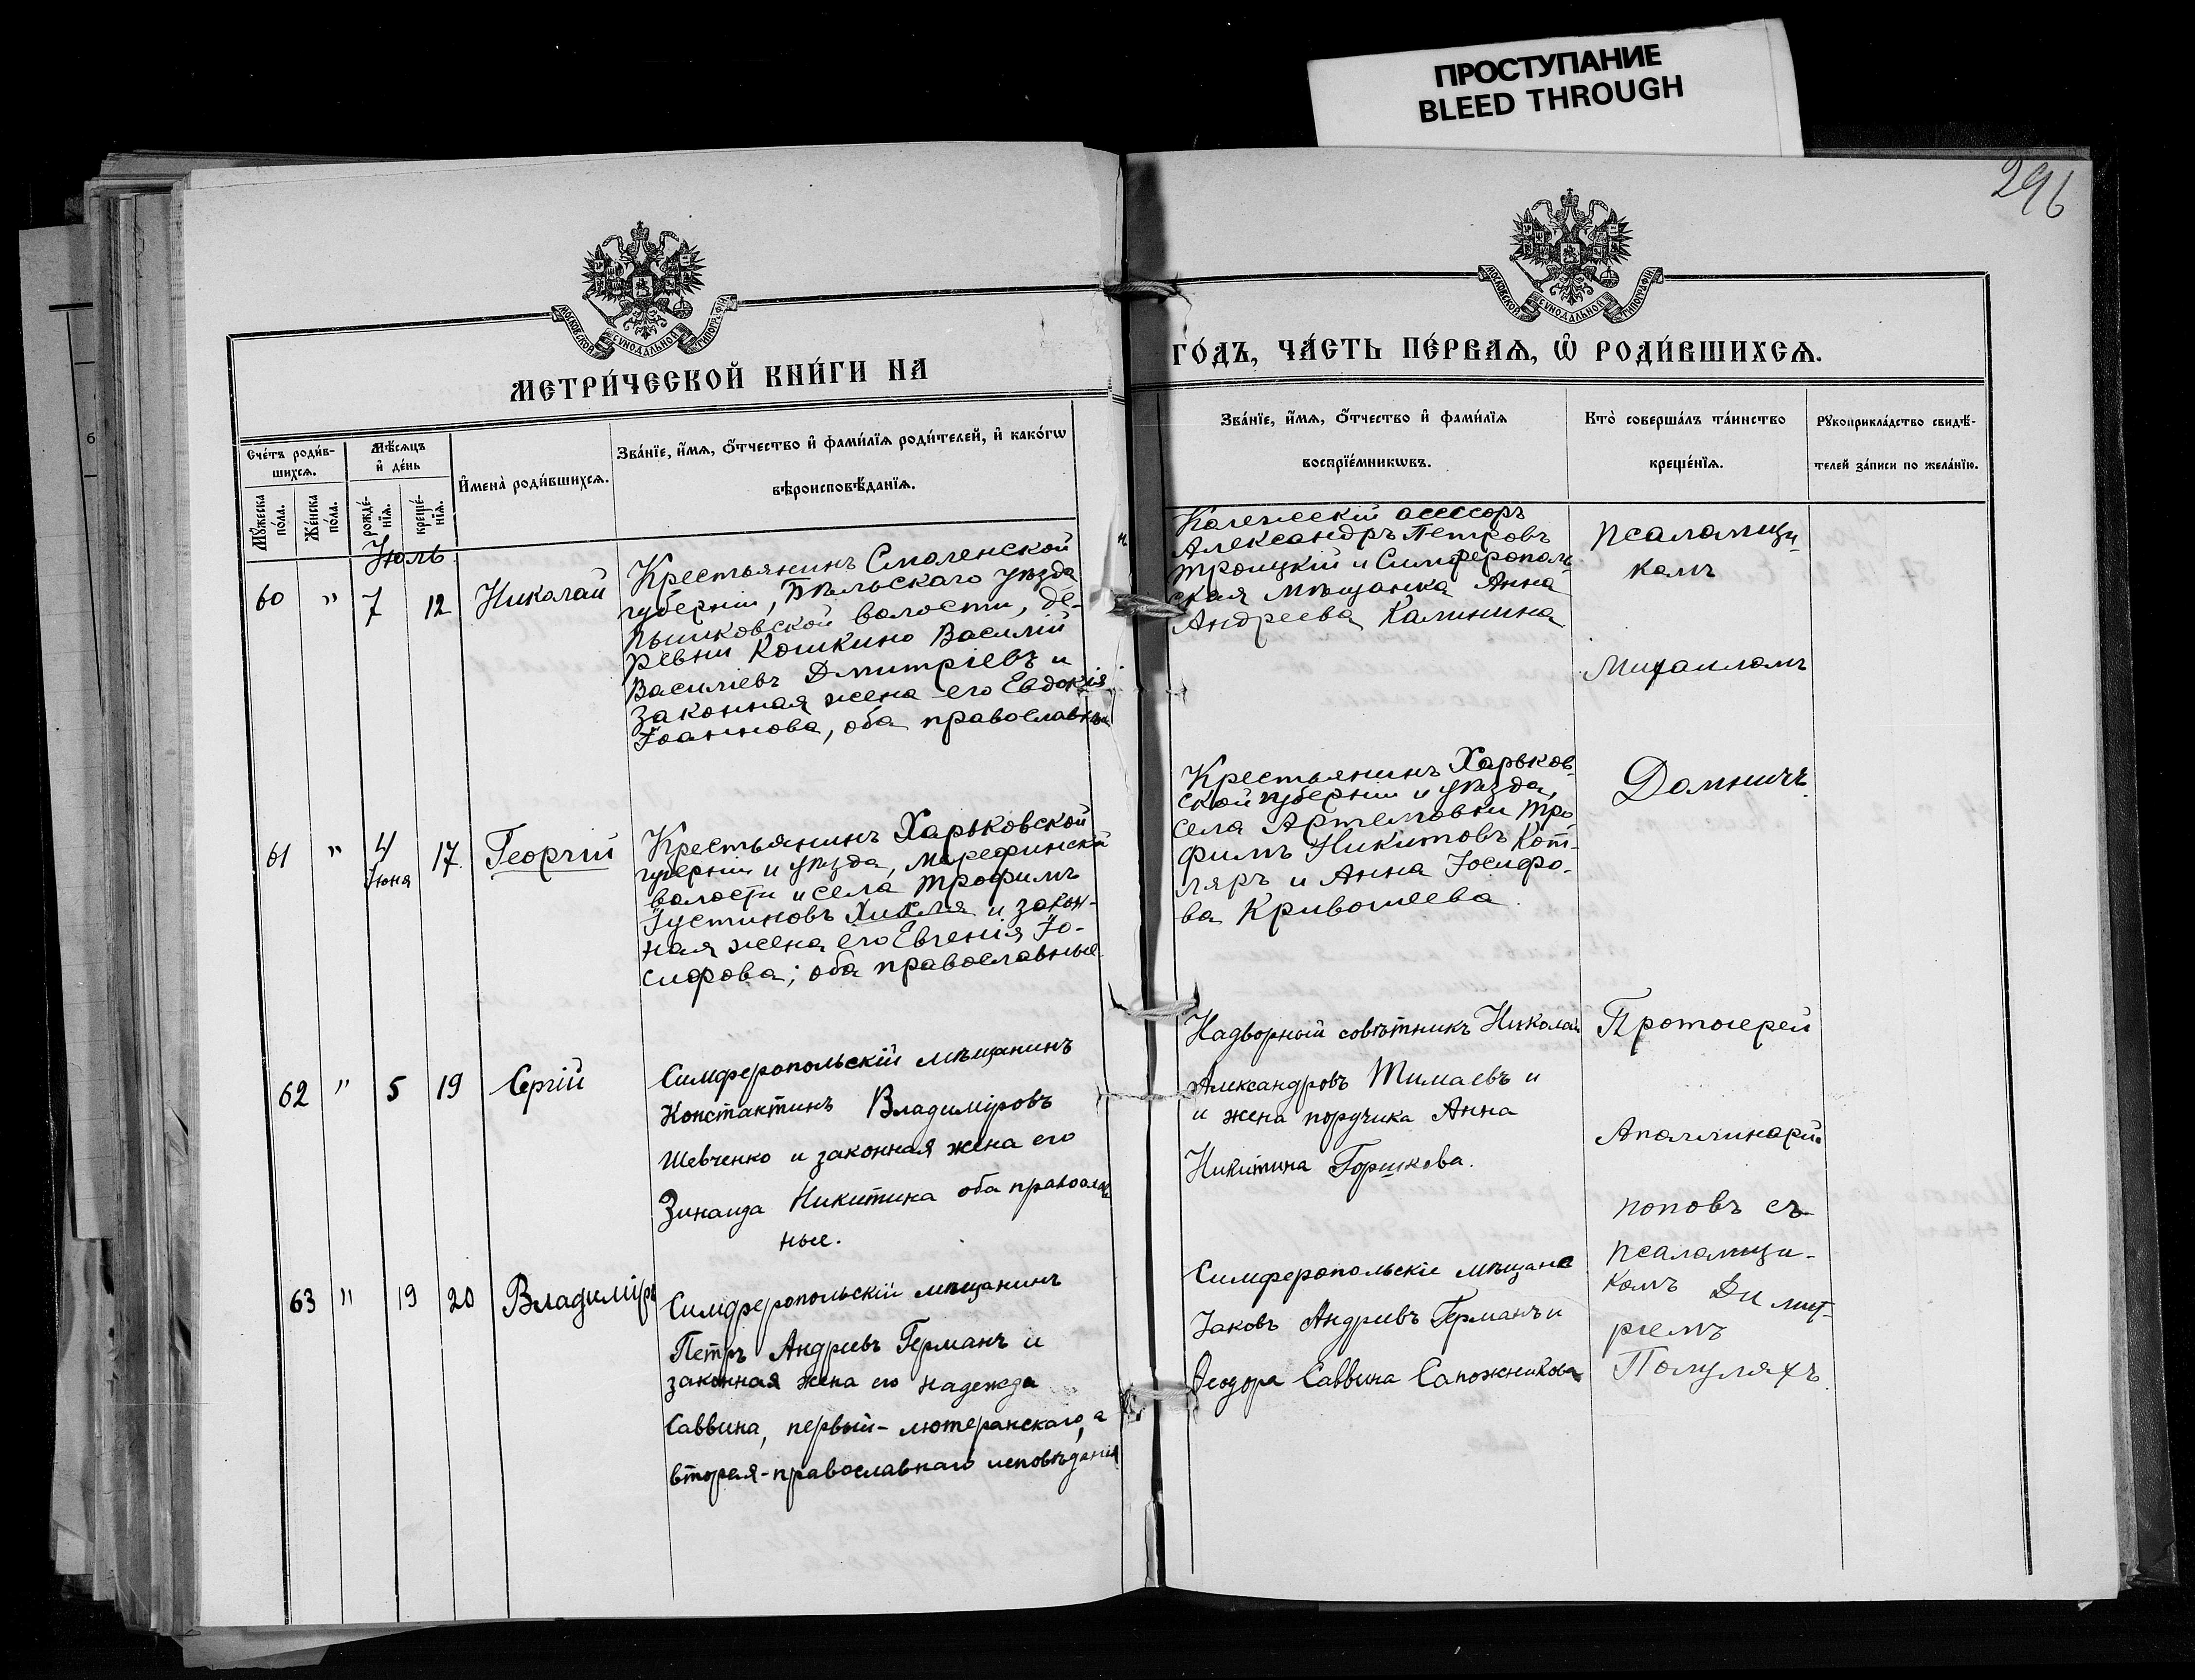 ПРОСТУПАНИЕ
BLEED THROUGH
296
МОСКОВСКОЙ СѴНОДАЛЬНОЙ ТИПОГРАФІИ
МОСКОВСКОЙ СѴНОДАЛЬНОЙ ТИПОГРАФІИ
МЕТРИ́ЧЕСКОЙ КНИ́ГИ НА
ГО́ДЪ, ЧА́СТЬ ПЕ́РВАѦ, Ѽ РОДИ́ВШИХСѦ.
Сче́тъ роди́в-
шихсѧ.
Мꙋ́жеска
по́ла.
Же́нска
по́ла.
Мѣ́сѧцъ
и҆ де́нь
рожде́-
нїѧ.
креще́-
нїѧ.
И҆мена̀ роди́вшихсѧ.
Зва́нїе, и҆́мѧ, ѻ҆́тчество и҆ фами́лїѧ роди́телей, и҆ како́гѡ
вѣроисповѣ́данїѧ.
Зва́нїе, и҆́мѧ, ѻ҆́тчество и҆ фами́лїѧ
воспрїе́мникѡвъ.
Кто̀ соверша́лъ та́инство
креще́нїѧ.
Рꙋкоприкла́дство свидѣ́-
телей за́писи по жела́нїю.
Июль
60 " 7 12 Николай
Крестьянинъ Смоленской
губерніи, Бѣльскаго уѣзда
Пышковской волости, де-
ревни Кошкино Василій
Василіевъ Дмитріевъ и
законная жена его Евдокія
Іоаннова, оба православны
Колежскій асессоръ
Александръ Петровъ
Троицкій и Симферополь-
ская мѣщанка Анна
Андреева Калинина
псаломщи-
комъ
Михаиломъ
61 " 4 17 Георгій
Іюня
Крестьянинъ Харьковской
губерніи и уѣзда, Мерефинской
волости и села Трофимъ
Іустиновъ и закон-
ная жена его Евгенія Іо-
сифова; оба православные
Крестьянинъ Харьков-
ской губерніи и уѣзда,
села Артемовки Тро-
фимъ Никитовъ Кот-
ляръ и Анна Іосифо-
ва Кривошеева.
Домничъ
62 " 5 19 Сергій
Симферопольскій мѣщанинъ
Константинъ Владиміровъ
Шевченко и законная жена его
Зинаида Никитина оба православ
ные.
Надворный совѣтникъ Николай
Александровъ Тимаевъ и
и жена поручика Анна
Никитина Горшкова.
Протоіерей
Аполлинарій
Поповъ съ
63 " 19 20 Владиміръ
Симферопольскій мѣщанинъ
Петръ Андреевъ Германъ и
законная жена его Надежда
Саввина, первый - лютеранскаго, а
вторая - православнаго исповѣданія
Симферопольскіе мѣщане
Іаковъ Андреевъ Германъ и
Ѳеодора Саввина Сапожникова
псаломщи-
комъ Димит-
ріемъ
Полуляхъ